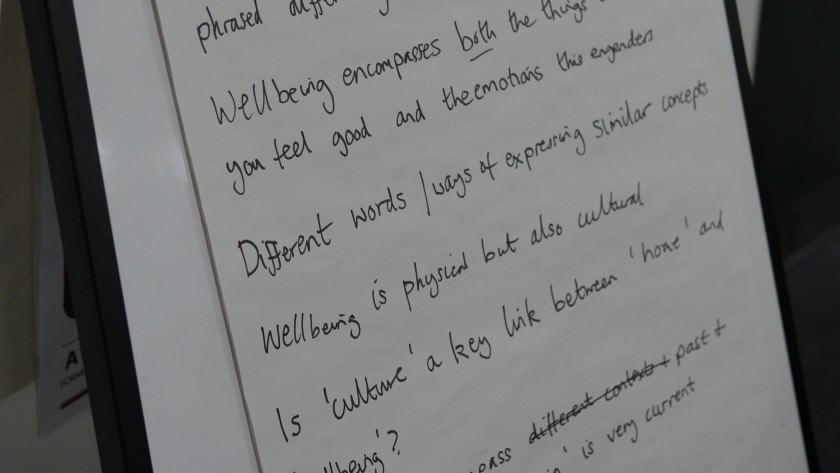 phrased
Wellbeing encompasses both the things
you feel good and the emotions this engenders
Different words / ways of expressing similar concepts
Wellbeing is physical but also cultural
Is 'culture' a key link between 'home' and
different contexts + past +
' is very current